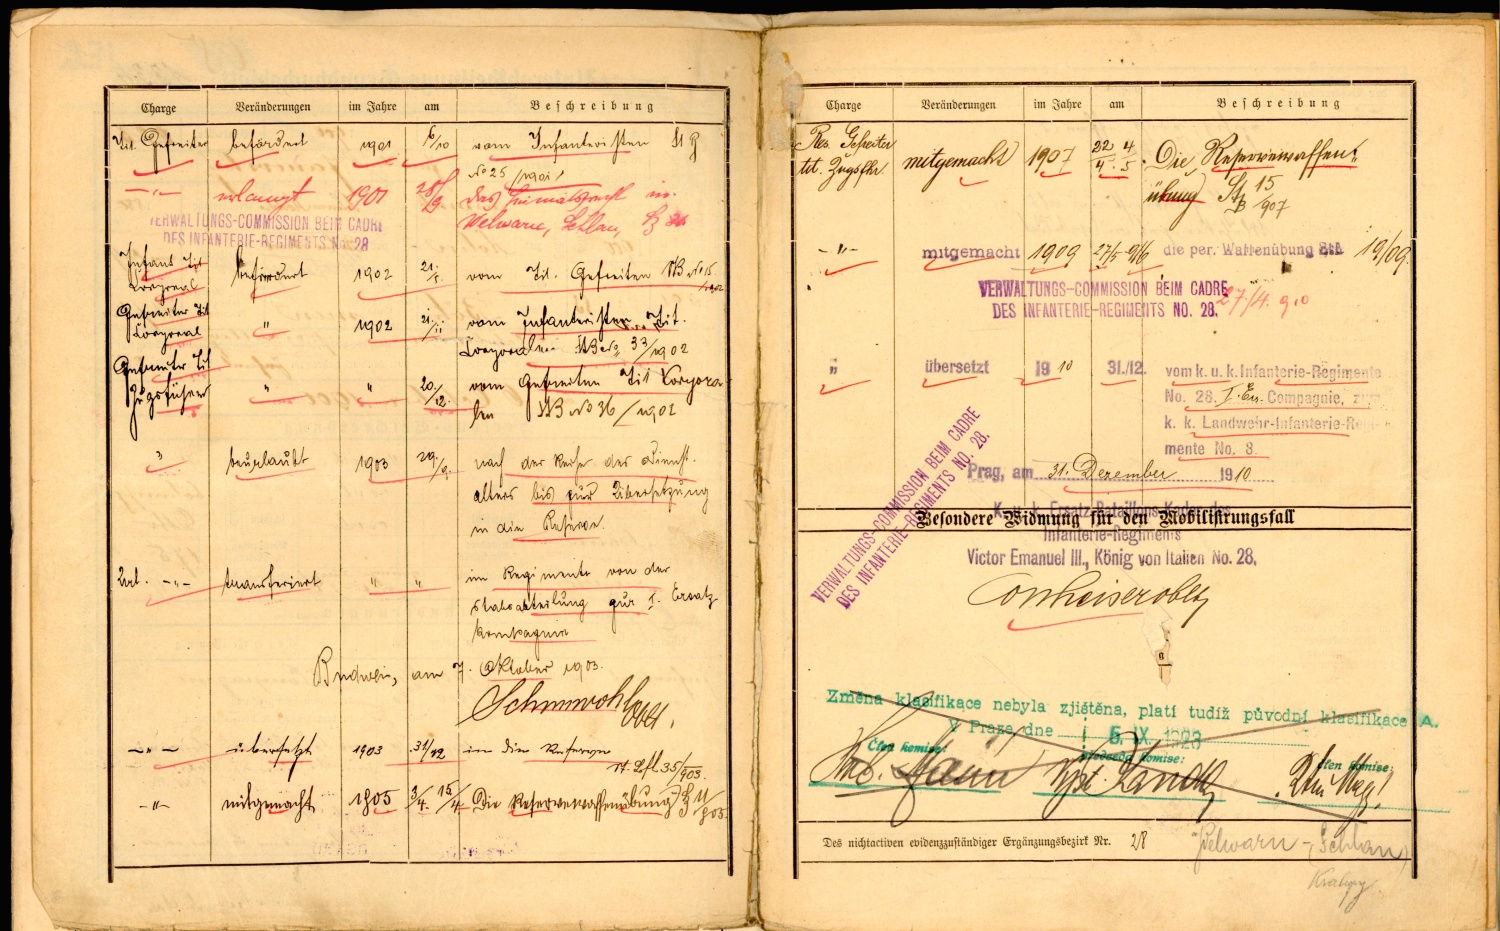 Charge Veränderungen im Jahre am Beschreibung
Tit. Gefreiter befördert 1901 6/10 vom Infanteristen
No 25/1901
-"- erlangt 1901 28/9 das Heimatsrecht in
Welwarn, Schlan,
VERWALTUNGS-COMMISSION BEIM CADRE
DES INFANTERIE-REGIMENTS No. 28
Infant. Tit. Corporal befördert 1902 21./5. vom Tit. Gefreiten No 15/1902
Gefreiter Tit. Corporal " 1902 21./11 vom Infanteristen Tit.
Corporalen No 33/1902
Gefreiter Tit. Zugsführer " " 20./12. vom Gefreiten Tit Korpora-
len No 36/1902
" beurlaubt 1903 29./9. nach der Reihe des Dienst-
alters bis zur Übersetzung
in die Reserve.
-"- transferiert " " im Regimente von der
Stabsabteilung zur I. Ersatz
Kompagnie
Budweis, am 7. Oktober 1903.
-"- übersetzt 1903 31/12 in die Reserve
35/903.
-"- mitgemacht 1905 3/4. 15/4 Die Reservewaffenübung
Charge Veränderungen im Jahre am Beschreibung
Res. Gefreiter
tit. Zugsfhr. mitgemacht 1907 22/4. 4/5. Die Reservewaffen-
übung 15/907
-"- mitgemacht 1909 27/5 9/6 die per. Waffenübung 19/09.
VERWALTUNGS-COMMISSION BEIM CADRE
DES INFANTERIE-REGIMENTS NO. 28.
27/4. 910
" übersetzt 1910 31./12. vom k. u. k. Infanterie-Regimente
No. 28. I. Ers. Compagnie, zum
k. k. Landwehr-Infanterie-Regi-
mente No. 8.
VERWALTUNGS-COMMISSION BEIM CADRE
DES INFANTERIE-REGIMENTS NO. 28.
Prag, am 31. Dezember 1910
K. u. k. Ersatz-Bataillons-Kader des
Besondere Widmung für den Mobilisirungsfall
Infanterie-Regiments
Victor Emanuel III., König von Italien No. 28,
Změna klasifikace nebyla zjištěna, platí tudíž původní klasifikace A.
V Praze, dne 5. IX. 1928
Člen komise: předseda komise: člen komise:
Des nichtactiven evidenzzuständiger Ergänzungsbezirk Nr. 28 Welwarn - (Schlan)